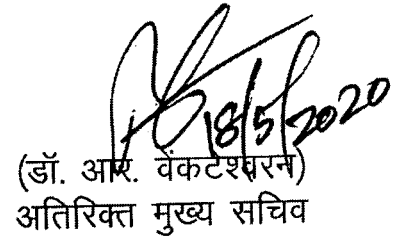 18/5/2020
(डॉ. आर. वेंकटेश्वरन)
अतिरिक्त मुख्य सचिव